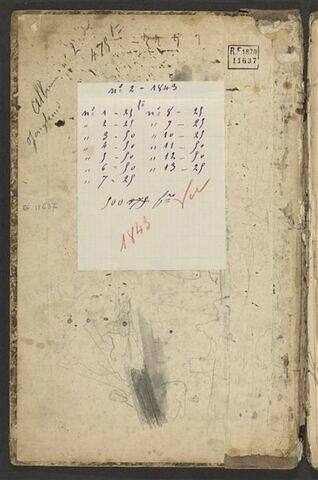 R.F. 1870
11637
478 f
Album
nº 2 - 1843
nº 1 - 25 nº 8 - 25
" 2 - 25 " 9 - 25
" 3 - 50 " 10 - 25
" 4 - 50 " 11 - 50
" 5 - 50 " 12 - 50
" 6 - 50 " 13 - 25
" 7 - 25
500
Vu
1843
RF 11637